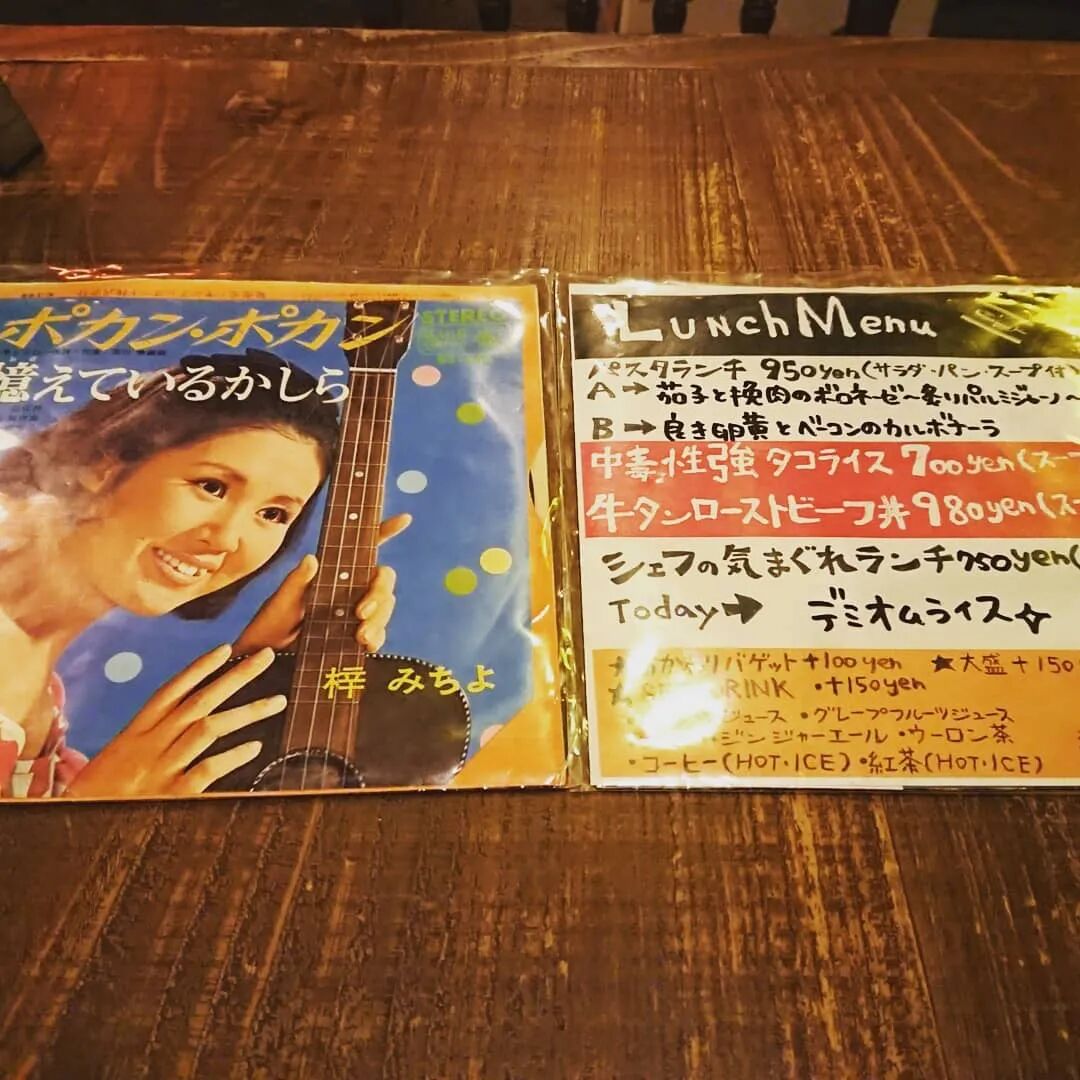 ポカン・ポカン
憶えているかしら
STEREO
梓 みちよ
Lunch Menu
パスタランチ 950yen(サラダ・パン・スープ付)
A→茄子と挽肉のボロネーゼ〜炙りパルミジャーノ〜
B→良き卵黄とベーコンのカルボナーラ
中毒性強 タコライス 700yen(スー
牛タンローストビーフ丼 980yen(スー
シェフの気まぐれランチ 750yen(
Today→ デミオムライス☆
バゲット+100yen ★大盛+150
DRINK ・+150yen
ジュース ・グレープフルーツジュース
ジンジャーエール・ウーロン茶
・コーヒー(HOT・ICE)・紅茶(HOT・ICE)